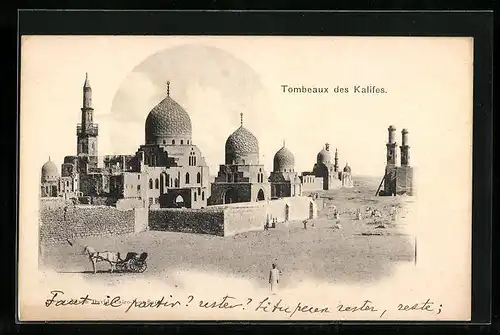 Tombeaux des Kalifes.
Faut-il partir? rester? Si tu peux rester, reste;